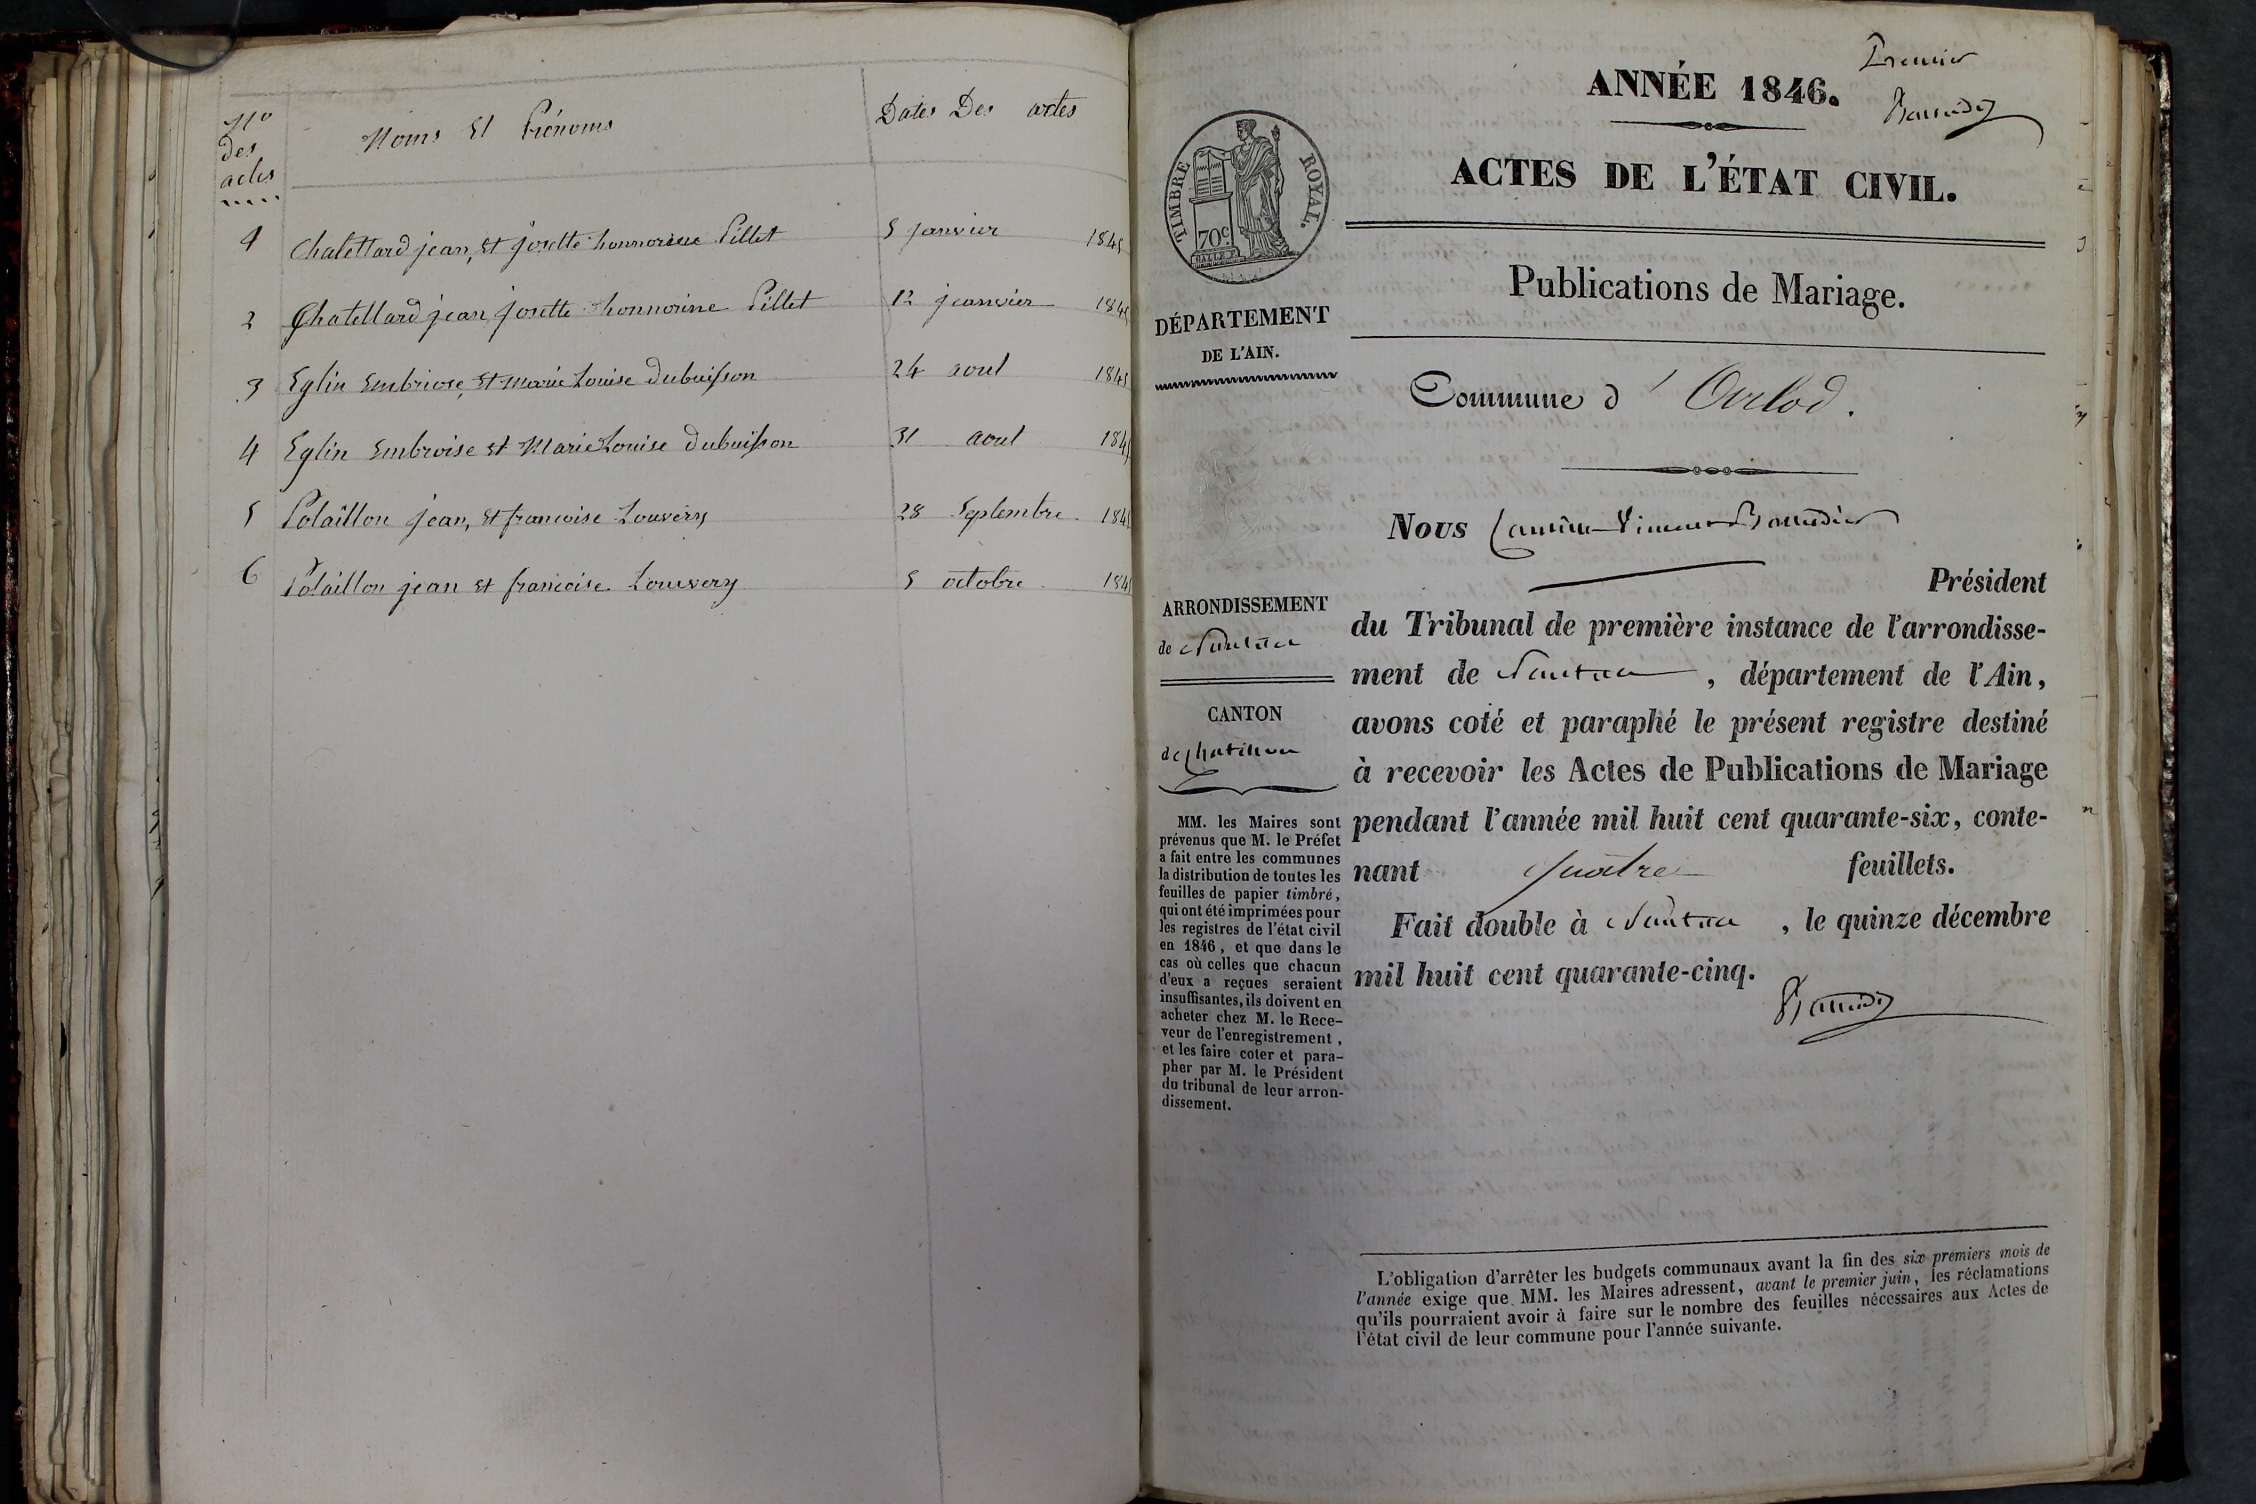 No
des
actes
Noms Et Prénoms
Dates Des actes
1 Chatellard jean, Et josette honnorine Pillet 5 janvier 1845
2 Chatellard jean josette honnorine Pillet 12 jeanvier 1845
3 Eglin Embriose, Et Marie Louise Dubuisson 24 aout 1845
4 Eglin Embroise Et Marie Louise Dubuisson 31 aout 1845
5 Polaillon jean, Et francoise Louvery 28 Septembre 1845
6 Polaillon jean Et francoise Louvery 5 octobre 1845
Premier
ANNÉE 1846.
ACTES DE L'ÉTAT CIVIL.
Publications de Mariage.
TIMBRE ROYAL.
70 c.
DÉPARTEMENT
DE L'AIN.
Commune d'Arlod.
Nous
Président
du Tribunal de première instance de l'arrondisse-
ment de Nantua, département de l'Ain,
avons coté et paraphé le présent registre destiné
à recevoir les Actes de Publications de Mariage
pendant l'année mil huit cent quarante-six, conte-
nant quatre feuillets.
Fait double à Nantua, le quinze décembre
mil huit cent quarante-cinq.
ARRONDISSEMENT
de Nantua
CANTON
de Chatillon
MM. les Maires sont
prévenus que M. le Préfet
a fait entre les communes
la distribution de toutes les
feuilles de papier timbré,
qui ont été imprimées pour
les registres de l'état civil
en 1846, et que dans le
cas où celles que chacun
d'eux a reçues seraient
insuffisantes, ils doivent en
acheter chez M. le Rece-
veur de l'enregistrement,
et les faire coter et para-
pher par M. le Président
du tribunal de leur arron-
dissement.
L'obligation d'arrêter les budgets communaux avant la fin des six premiers mois de
l'année exige que MM. les Maires adressent, avant le premier juin, les réclamations
qu'ils pourraient avoir à faire sur le nombre des feuilles nécessaires aux Actes de
l'état civil de leur commune pour l'année suivante.